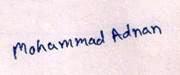 Mohammad Adnan